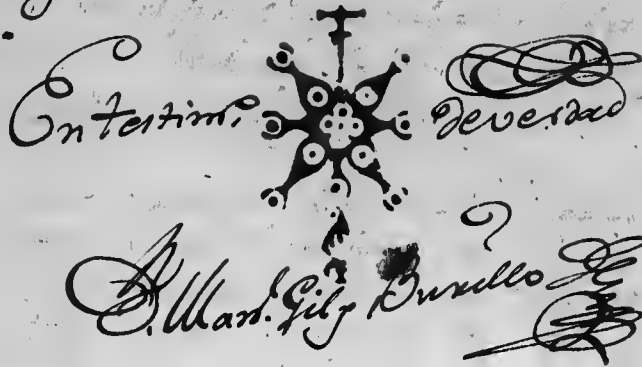 En testim.º de verdad
D. Man.l Gil y Burillo